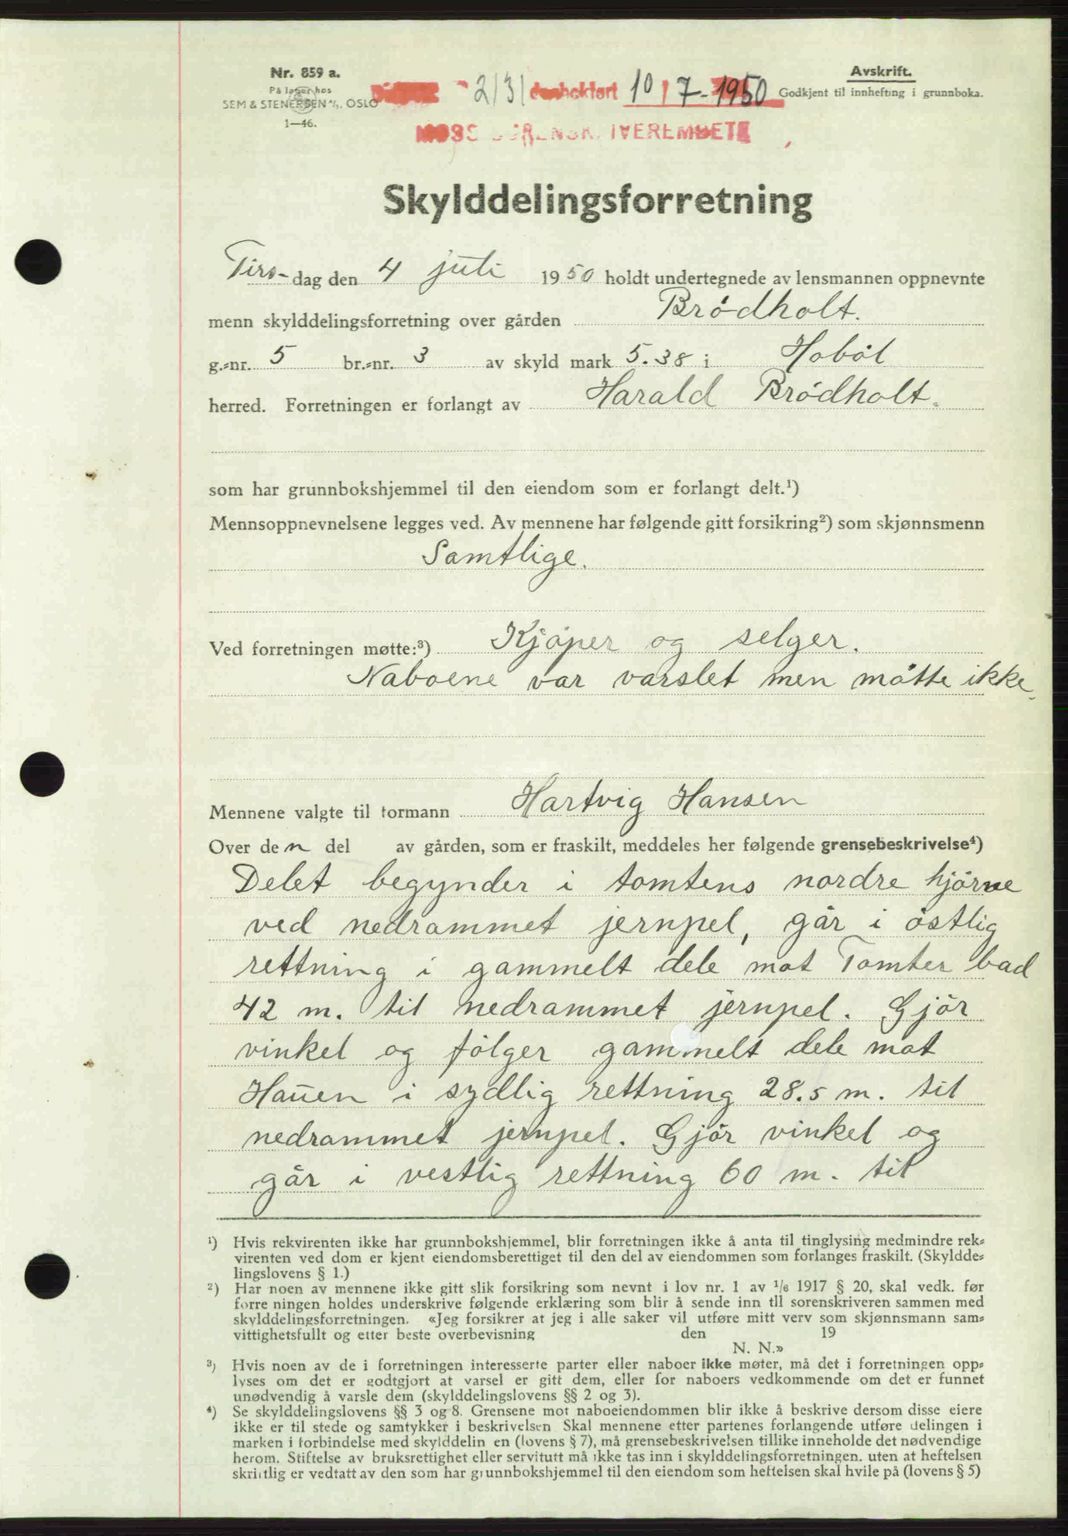 Nr. 859 a.
På lager hos
SEM & STENERSEN A/S, OSLO
1—46.
2131 dagbokført 10/7-1950
MOSS SORENSKRIVEREMBETE
Avskrift.
Godkjent til innhefting i grunnboka.
Skylddelingsforretning
Tirs- dag den 4 juli 1950 holdt undertegnede av lensmannen oppnevnte
menn skylddelingsforretning over gården Brödholt.
g.-nr. 5 br.-nr. 3 av skyld mark 5.38 i Hoböl
herred. Forretningen er forlangt av Harald Brödholt.
som har grunnbokshjemmel til den eiendom som er forlangt delt.¹)
Mennsoppnevnelsene legges ved. Av mennene har følgende gitt forsikring²) som skjønnsmenn
Samtlige.
Ved forretningen møtte:³) Kjöper og selger.
Naboene var varslet men mötte ikke.
Mennene valgte til formann Hartvig Hansen
Over den del av gården, som er fraskilt, meddeles her følgende grensebeskrivelse⁴)
Delet begynder i tomtens nordre hjörne
ved nedrammet jernpel, går i östlig
rettning i gammelt dele mot Tomter bad
42 m. til nedrammet jernpel. Gjör
vinkel og fölger gammelt dele mot
Hauen i sydlig rettning 28.5 m. til
nedrammet jernpel. Gjör vinkel og
går i vestlig rettning 60 m. til
¹) Hvis rekvirenten ikke har grunnbokshjemmel, blir forretningen ikke å anta til tinglysing medmindre rek-
virenten ved dom er kjent eiendomsberettiget til den del av eiendommen som forlanges fraskilt. (Skyldde-
lingslovens § 1.)
²) Har noen av mennene ikke gitt slik forsikring som nevnt i lov nr. 1 av 1/6 1917 § 20, skal vedk. før
forretningen holdes underskrive følgende erklæring som blir å sende inn til sorenskriveren sammen med
skylddelingsforretningen. «Jeg forsikrer at jeg i alle saker vil utføre mitt verv som skjønnsmann sam-
vittighetsfullt og etter beste overbevisning den 19
N. N.»
³) Hvis noen av de i forretningen interesserte parter eller naboer ikke møter, må det i forretningen opp-
lyses om det er godtgjort at varsel er gitt dem, eller for naboers vedkommende om det er funnet
unødvendig å varsle dem (skylddelingslovens §§ 2 og 3).
⁴) Se skylddelingslovens §§ 3 og 8. Grensene mot naboeiendommen blir ikke å beskrive dersom disse eiere
ikke er til stede og samtykker i beskrivelsen Skal mennene etter partenes forlangende utføre delingen i
marken i forbindelse med skylddelingen (lovens § 7), må grensebeskrivelsen tillike inneholde det nødvendige
herom. Stiftelse av bruksrettighet eller servitutt må ikke tas inn i skylddelingsforretningen. uten at heftelsen
skriftlig er vedtatt av den som har grunnbokshjemmel til den eiendom som heftelsen skal hvile på (lovens § 5)